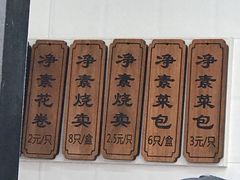 净素花卷
2元/只
净素烧卖
8只/盒
净素烧卖
2.5元/只
净素菜包
6只/盒
净素菜包
3元/只